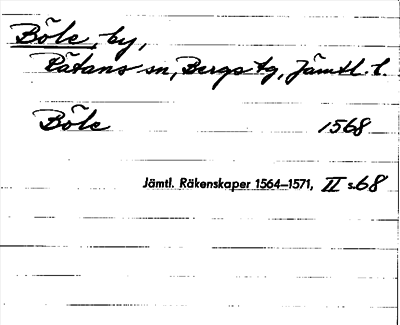 Böle, by,
Rätans sn, Bergs tg, Jämtl. l.
Böle 1568
Jämtl. Räkenskaper 1564–1571, II s. 68